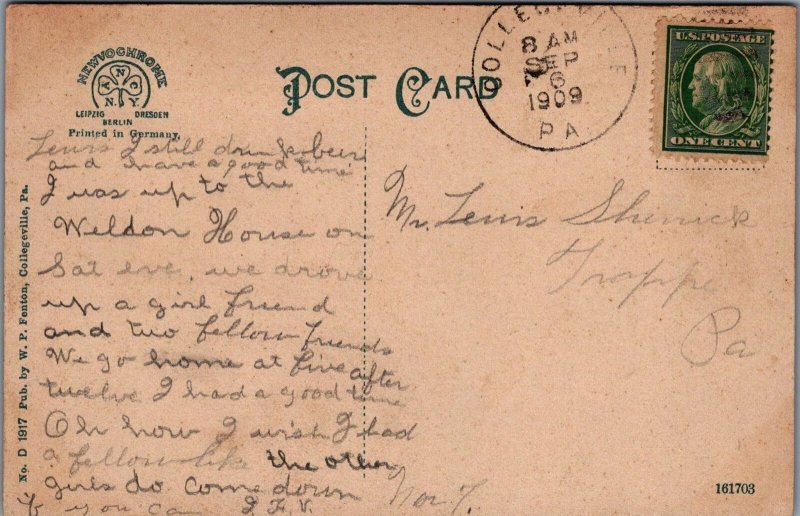 NEWVOCHROME
A N C
N.Y.
LEIPZIG DRESDEN
BERLIN
Printed in Germany.
POST CARD
COLLEGEVILLE
8 AM
SEP
6
1909
PA
U.S. POSTAGE
ONE CENT
No. D 1917 Pub. by W. P. Fenton, Collegeville, Pa.
Lewis I still drink beer
and have a good time
I was up to the
Weldon House on
Sat eve, we drove
up a girl friend
and two fellow friends
We go home at five after
twelve I had a good time
Oh how I wish I had
a fellow like the other
girls do come down
if you can I. F. V.
Mr. Lewis
Trappe
Pa
161703